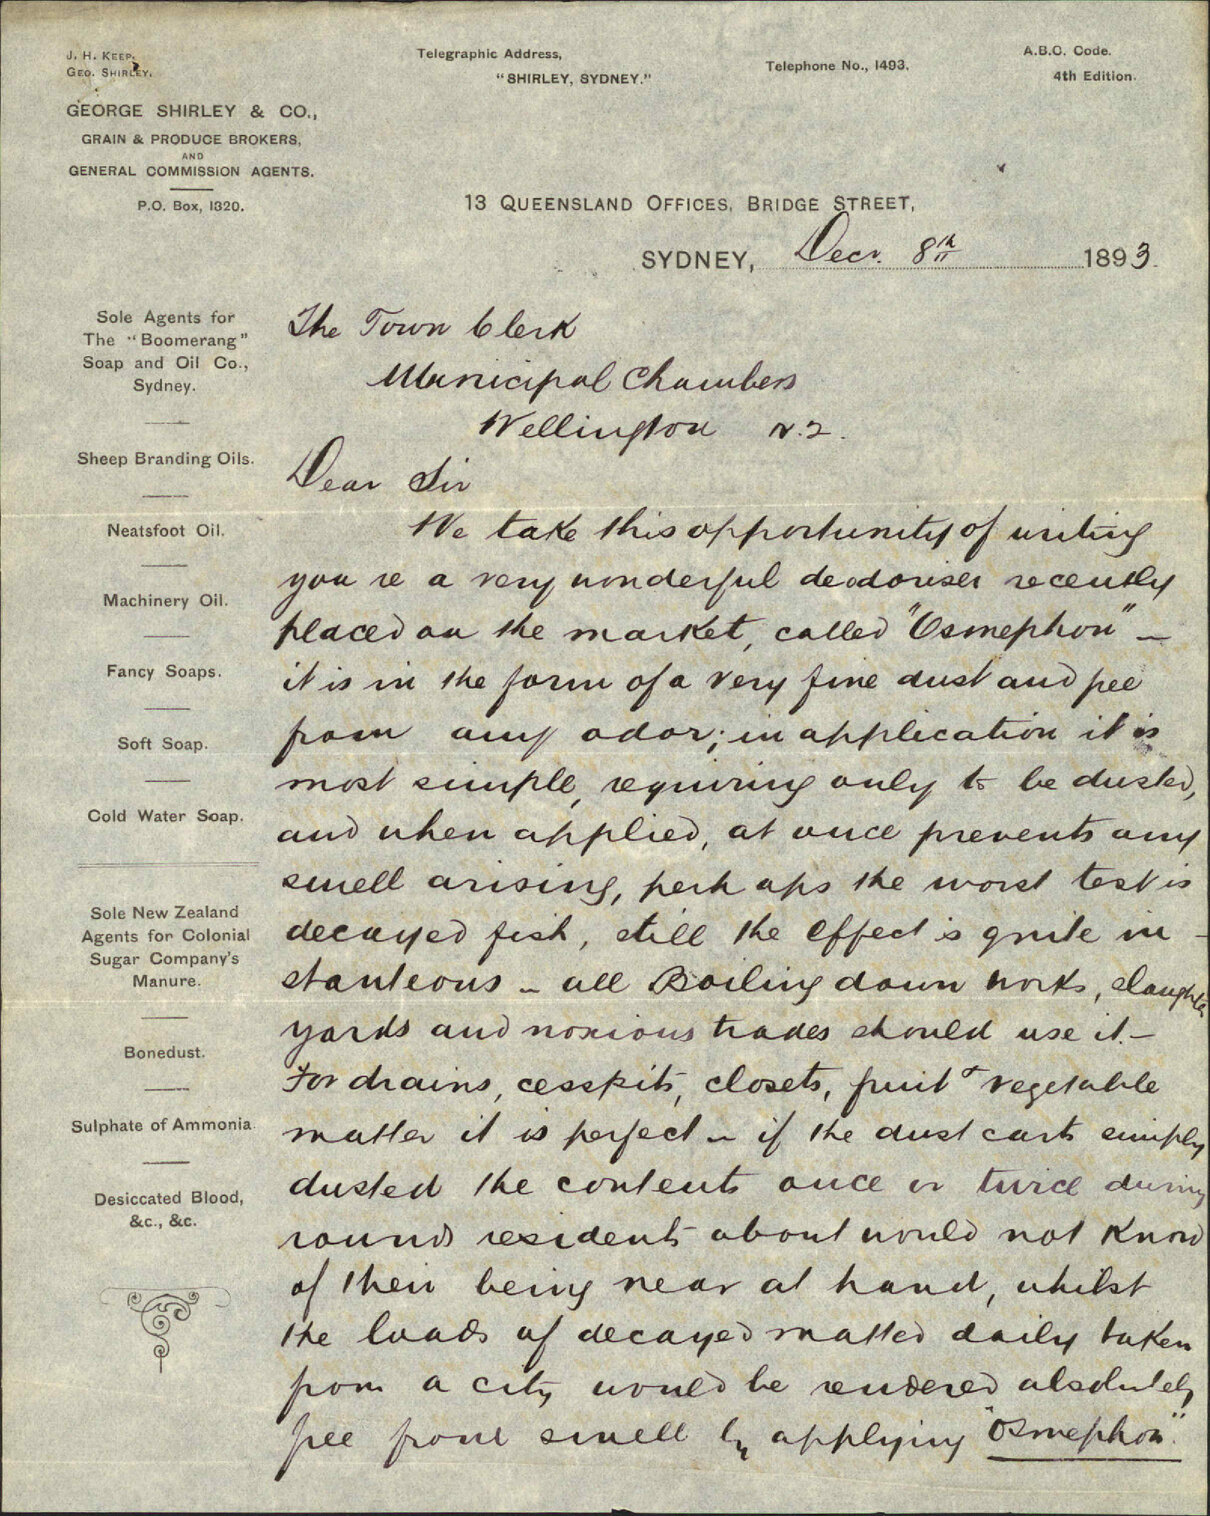 J. H. KEEP.
GEO. SHIRLEY.
GEORGE SHIRLEY & CO.,
GRAIN & PRODUCE BROKERS,
AND
GENERAL COMMISSION AGENTS.
P.O. Box, 1320.
Telegraphic Address,
"SHIRLEY, SYDNEY."
Telephone No., 1493.
A.B.C. Code.
4th Edition.
13 QUEENSLAND OFFICES, BRIDGE STREET,
SYDNEY, Decr. 8th 1893.
Sole Agents for
The "Boomerang"
Soap and Oil Co.,
Sydney.
Sheep Branding Oils.
Neatsfoot Oil.
Machinery Oil.
Fancy Soaps.
Soft Soap.
Cold Water Soap.
Sole New Zealand
Agents for Colonial
Sugar Company's
Manure.
Bonedust.
Sulphate of Ammonia
Desiccated Blood,
&c., &c.
The Town Clerk
Municipal Chambers
Wellington N.Z.
Dear Sir
We take this opportunity of writing
you re a very wonderful deodoriser recently
placed on the market, called "Osmephon" –
it is in the form of a very fine dust and free
from any odor; in application it is
most simple, requiring only to be dusted,
and when applied, at once prevents any
smell arising, perhaps the worst test is
decayed fish, still the effect is quite in-
stanteous – all Boiling down works, slaughter
yards and noxious trades should use it. –
For drains, cesspits, closets, fruit & vegetable
matter it is perfect – if the dust carts simply
dusted the contents once or twice during
rounds residents about would not know
of their being near at hand, whilst
the loads of decayed matter daily taken
from a city would be rendered absolutely
free from smell by applying "Osmephon".